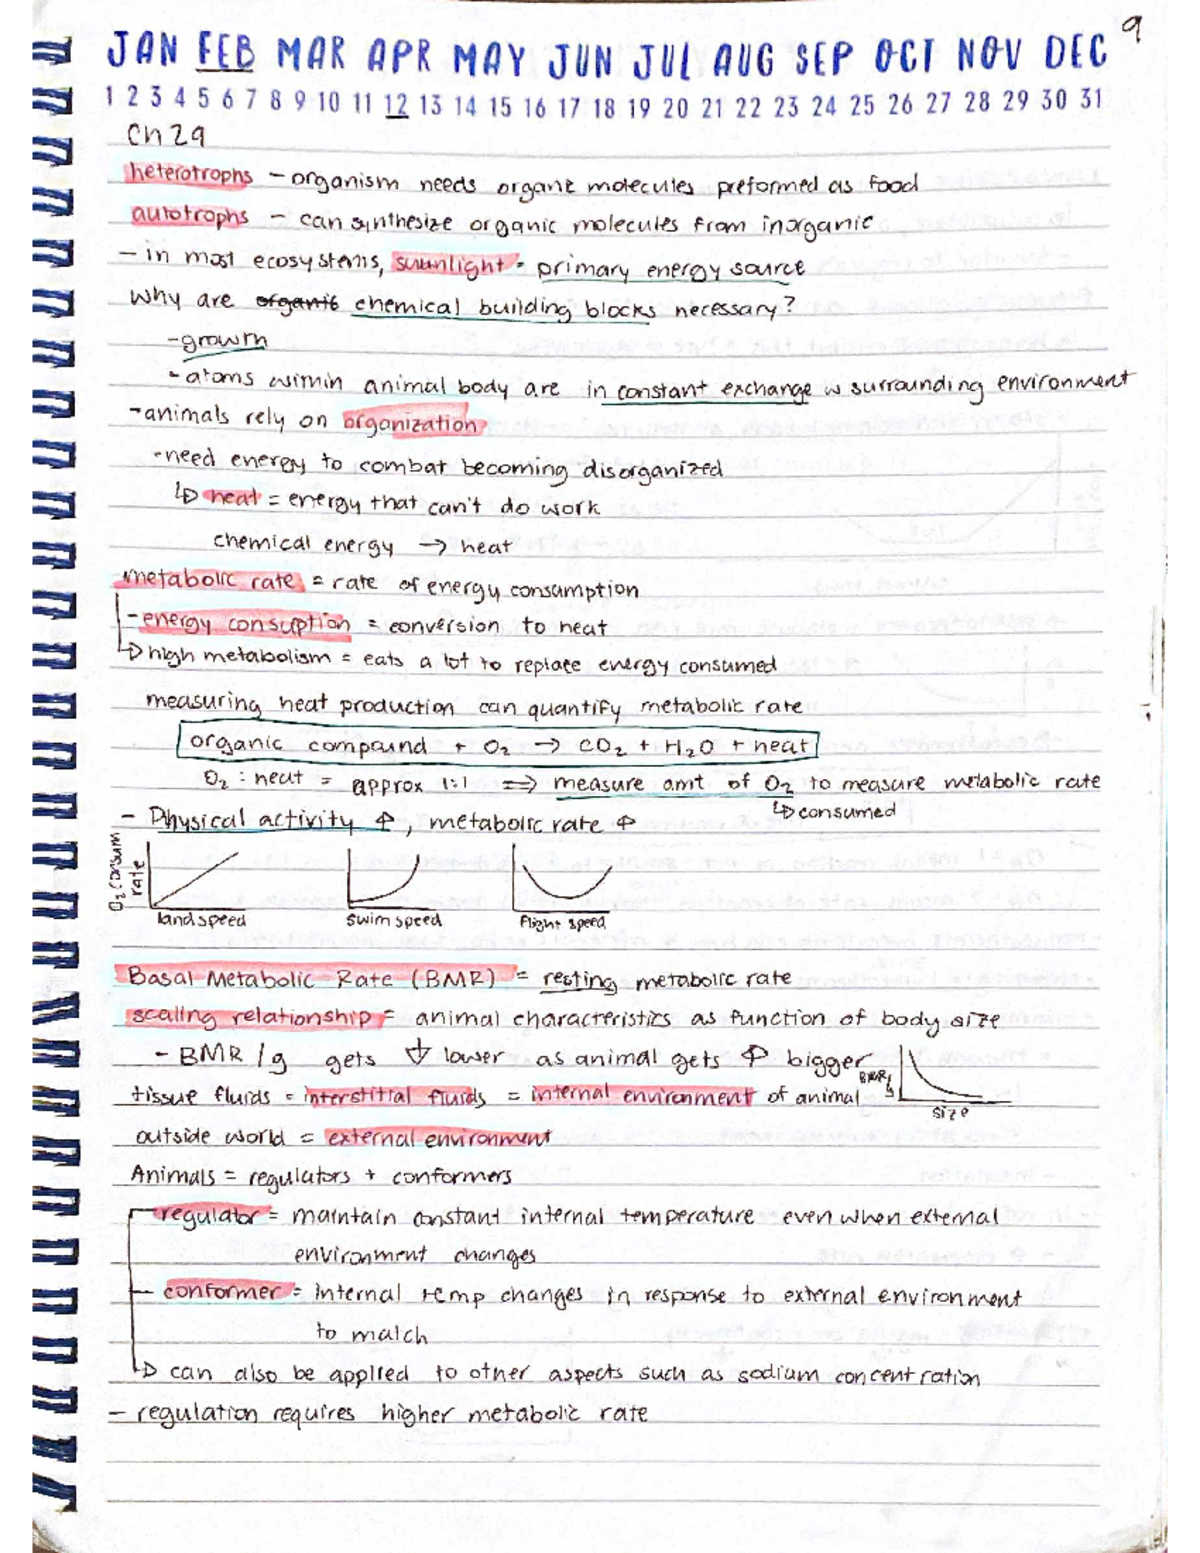 9
JAN FEB MAR APR MAY JUN JUL AUG SEP OCT NOV DEC
1 2 3 4 5 6 7 8 9 10 11 12 13 14 15 16 17 18 19 20 21 22 23 24 25 26 27 28 29 30 31
Ch 29
heterotrophs - organism needs organic molecules preformed as food
autotrophs - can synthesize organic molecules from inorganic
- in most ecosystems, sunlight = primary energy source
Why are organic chemical building blocks necessary?
- growth
- atoms within animal body are in constant exchange w surrounding environment
- animals rely on organization
- need energy to combat becoming disorganized
↳ heat = energy that can't do work
chemical energy → heat
metabolic rate = rate of energy consumption
- energy consuption = conversion to heat
↳ high metabolism = eats a lot to replace energy consumed
measuring heat production can quantify metabolic rate
organic compound + O₂ → CO₂ + H₂O + heat
O₂ : heat = approx 1:1 ⇒ measure amt of O₂ to measure metabolic rate
↳ consumed
- Physical activity ↑, metabolic rate ↑
O₂ consum rate
land speed swim speed flight speed
Basal Metabolic Rate (BMR) = resting metabolic rate
scaling relationship = animal characteristics as function of body size
- BMR/g gets ↓ lower as animal gets ↑ bigger
BMR/g
tissue fluids = interstitial fluids = internal environment of animal
size
outside world = external environment
Animals = regulators + conformers
regulator = maintain constant internal temperature even when external
environment changes
- conformer = internal temp changes in response to external environment
to match
↳ can also be applied to other aspects such as sodium concentration
- regulation requires higher metabolic rate